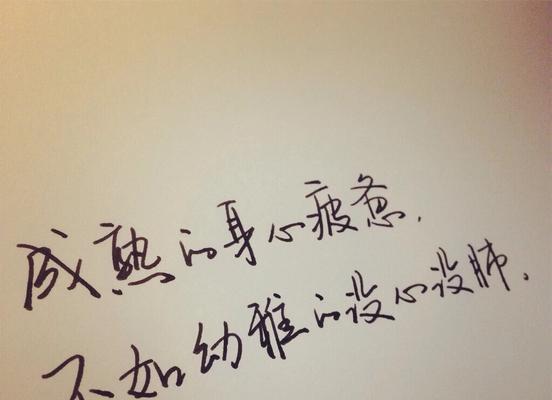 成熟的身心疲惫，
不如幼稚的没心没肺.